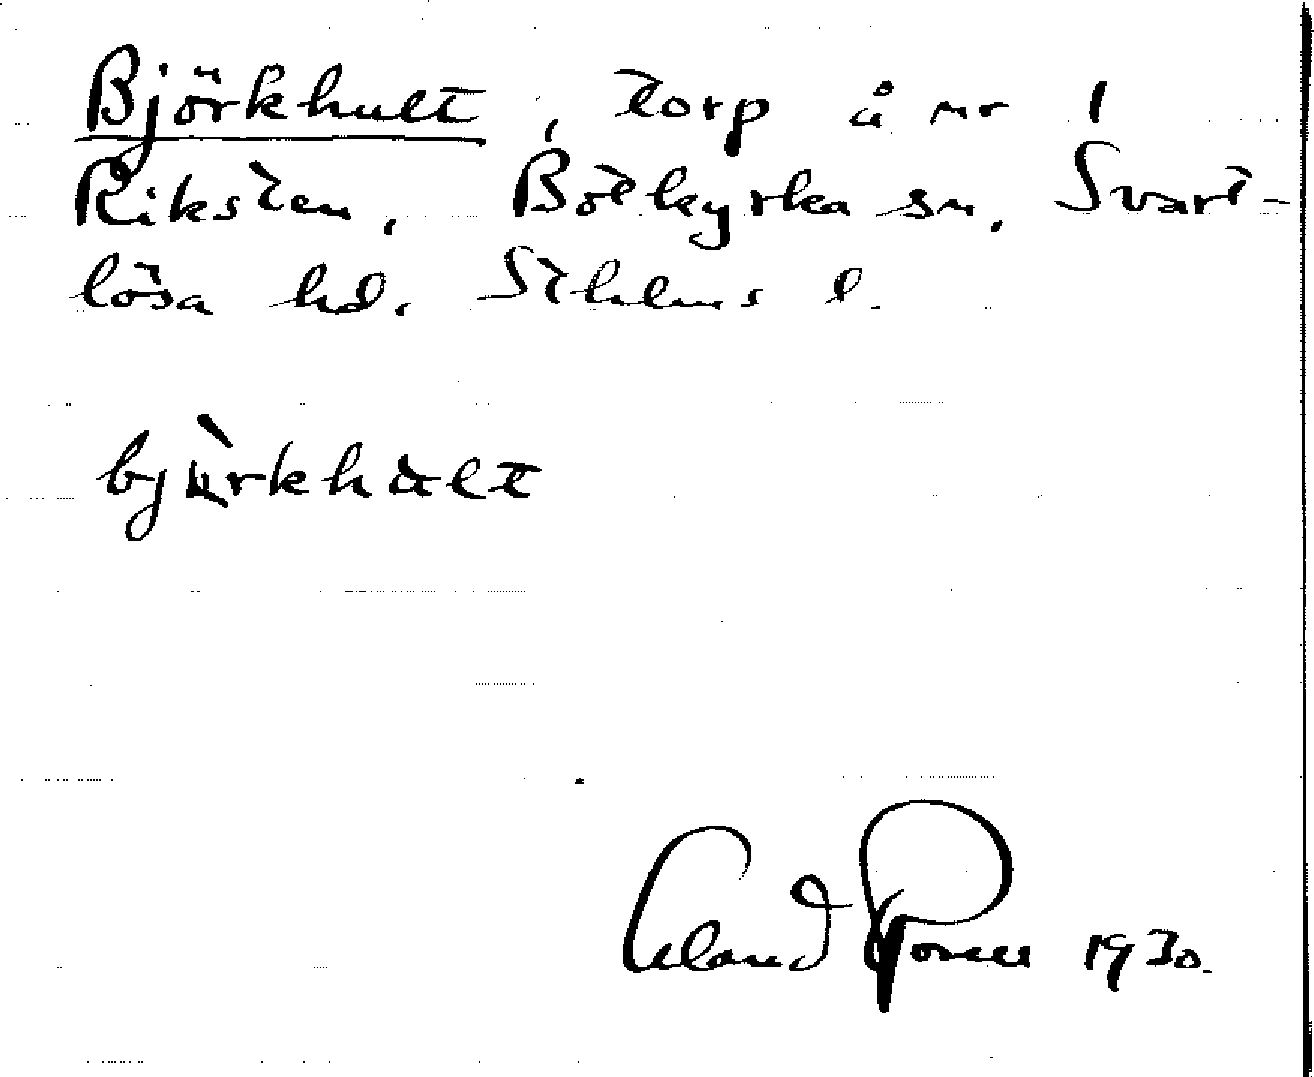 Björkhult, torp å nr 1
Riksten, Botkyrka sn, Svart-
lösa hd. Sthlms l.
bjùrkhalt
1930.